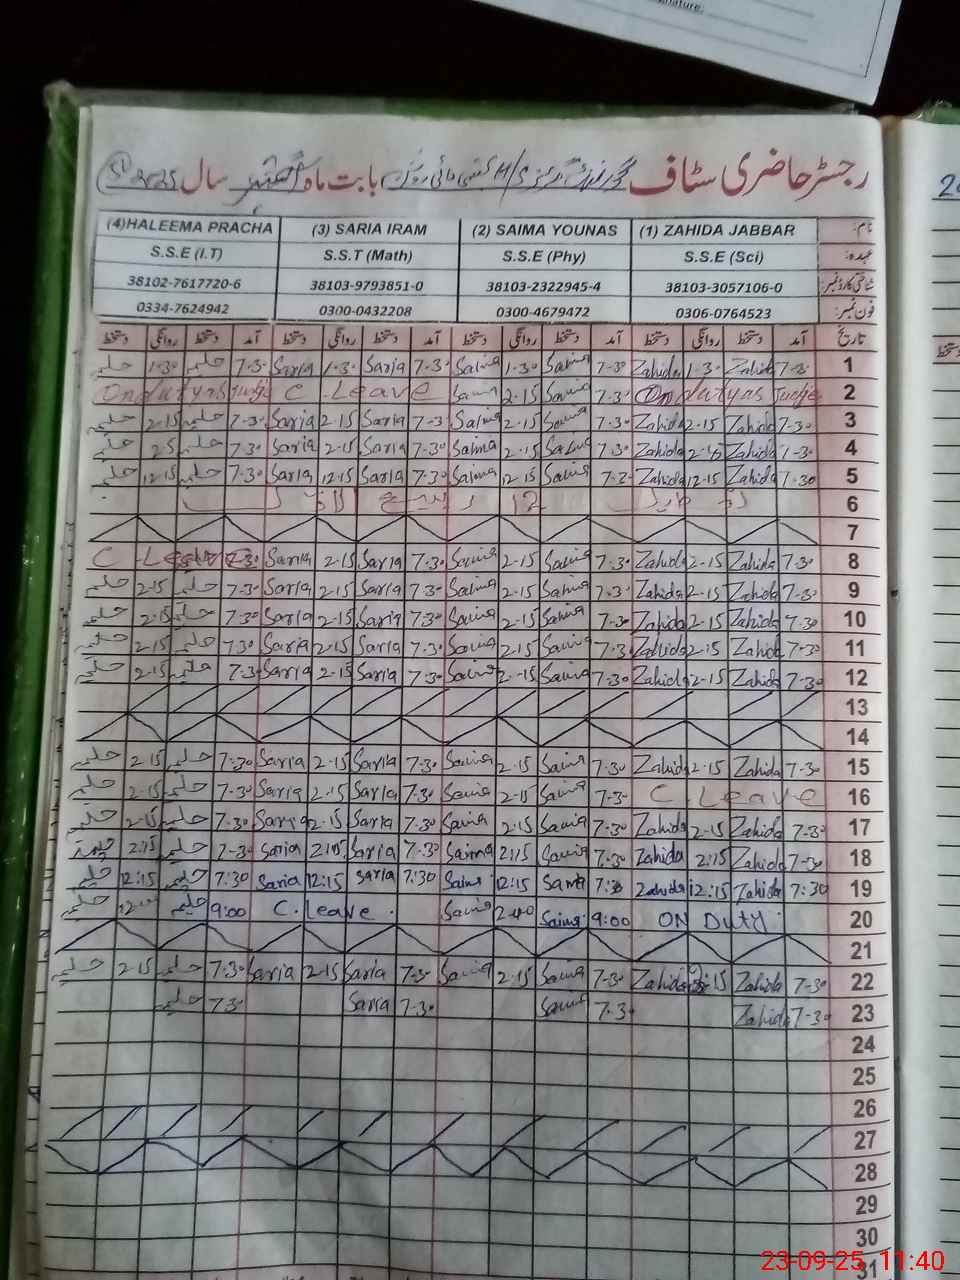 رجسٹر حاضری سٹاف بابت ماہ ستمبر سال 2025
نام: (1) ZAHIDA JABBAR (2) SAIMA YOUNAS (3) SARIA IRAM (4)HALEEMA PRACHA
عہدہ: S.S.E (Sci) S.S.E (Phy) S.S.T (Math) S.S.E (I.T)
شناختی کارڈ نمبر: 38103-3057106-0 38103-2322945-4 38103-9793851-0 38102-7617720-6
فون نمبر: 0306-0764523 0300-4679472 0300-0432208 0334-7624942
تاریخ آمد دستخط روانگی دستخط آمد دستخط روانگی دستخط آمد دستخط روانگی دستخط آمد دستخط روانگی دستخط
1 7-30 Zahida 1-30 Zahida 7-30 Saima 1-30 Saima 7-30 Saria 1-30 Saria 7-30 حلیمہ 1-30 حلیمہ
2 On duty as Judge 7-30 Saima 2-15 Saima C Leave On duty as Judge
3 7-30 Zahida 2-15 Zahida 7-30 Saima 2-15 Saima 7-30 Saria 2-15 Saria 7-30 حلیمہ 2-15 حلیمہ
4 7-30 Zahida 2-15 Zahida 7-30 Saima 2-15 Saima 7-30 Saria 2-15 Saria 7-30 حلیمہ 2-15 حلیمہ
5 7-30 Zahida 12-15 Zahida 7-30 Saima 12-15 Saima 7-30 Saria 12-15 Saria 7-30 حلیمہ 12-15 حلیمہ
6 12 ربیع الاول
7
8 7-30 Zahida 2-15 Zahida 7-30 Saima 2-15 Saima 7-30 Saria 2-15 Saria C Leave
9 7-30 Zahida 2-15 Zahida 7-30 Saima 2-15 Saima 7-30 Saria 2-15 Saria 7-30 حلیمہ 2-15 حلیمہ
10 7-30 Zahida 2-15 Zahida 7-30 Saima 2-15 Saima 7-30 Saria 2-15 Saria 7-30 حلیمہ 2-15 حلیمہ
11 7-30 Zahida 2-15 Zahida 7-30 Saima 2-15 Saima 7-30 Saria 2-15 Saria 7-30 حلیمہ 2-15 حلیمہ
12 7-30 Zahida 2-15 Zahida 7-30 Saima 2-15 Saima 7-30 Saria 2-15 Saria 7-30 حلیمہ 2-15 حلیمہ
13
14
15 7-30 Zahida 2-15 Zahida 7-30 Saima 2-15 Saima 7-30 Saria 2-15 Saria 7-30 حلیمہ 2-15 حلیمہ
16 C. Leave 7-30 Saima 2-15 Saima 7-30 Saria 2-15 Saria 7-30 حلیمہ 2-15 حلیمہ
17 7-30 Zahida 2-15 Zahida 7-30 Saima 2-15 Saima 7-30 Saria 2-15 Saria 7-30 حلیمہ 2-15 حلیمہ
18 7-30 Zahida 2:15 Zahida 7-30 Saima 2:15 Saima 7-30 Saria 2:15 Saria 7-30 حلیمہ 2:15 حلیمہ
19 7:30 Zahida 12:15 Zahida 7:30 Saima 12:15 Saima 7:30 Saria 12:15 Saria 7:30 حلیمہ 12:15 حلیمہ
20 ON Duty 9:00 Saima 2-00 Saima C. Leave 9:00 حلیمہ حلیمہ
21
22 7-30 Zahida 2:15 Zahida 7-30 Saima 2-15 Saima 7-30 Saria 2-15 Saria 7-30 حلیمہ 2-15 حلیمہ
23 7-30 Zahida 7-30 Saima 7-30 Saria 7-30 حلیمہ
24
25
26
27
28
29
30
31
23-09-25 11:40